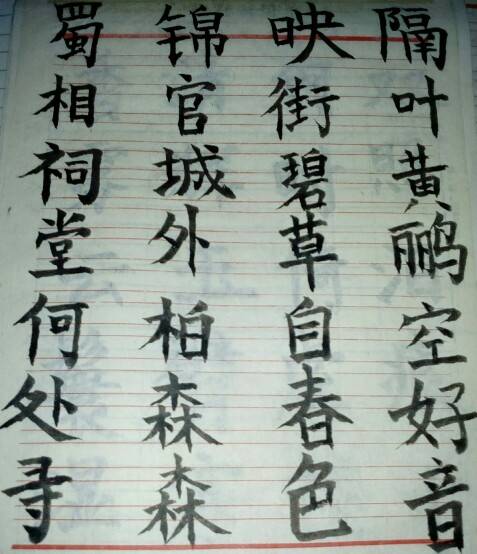 蜀相祠堂何处寻
锦官城外柏森森
映街碧草自春色
隔叶黄鹂空好音